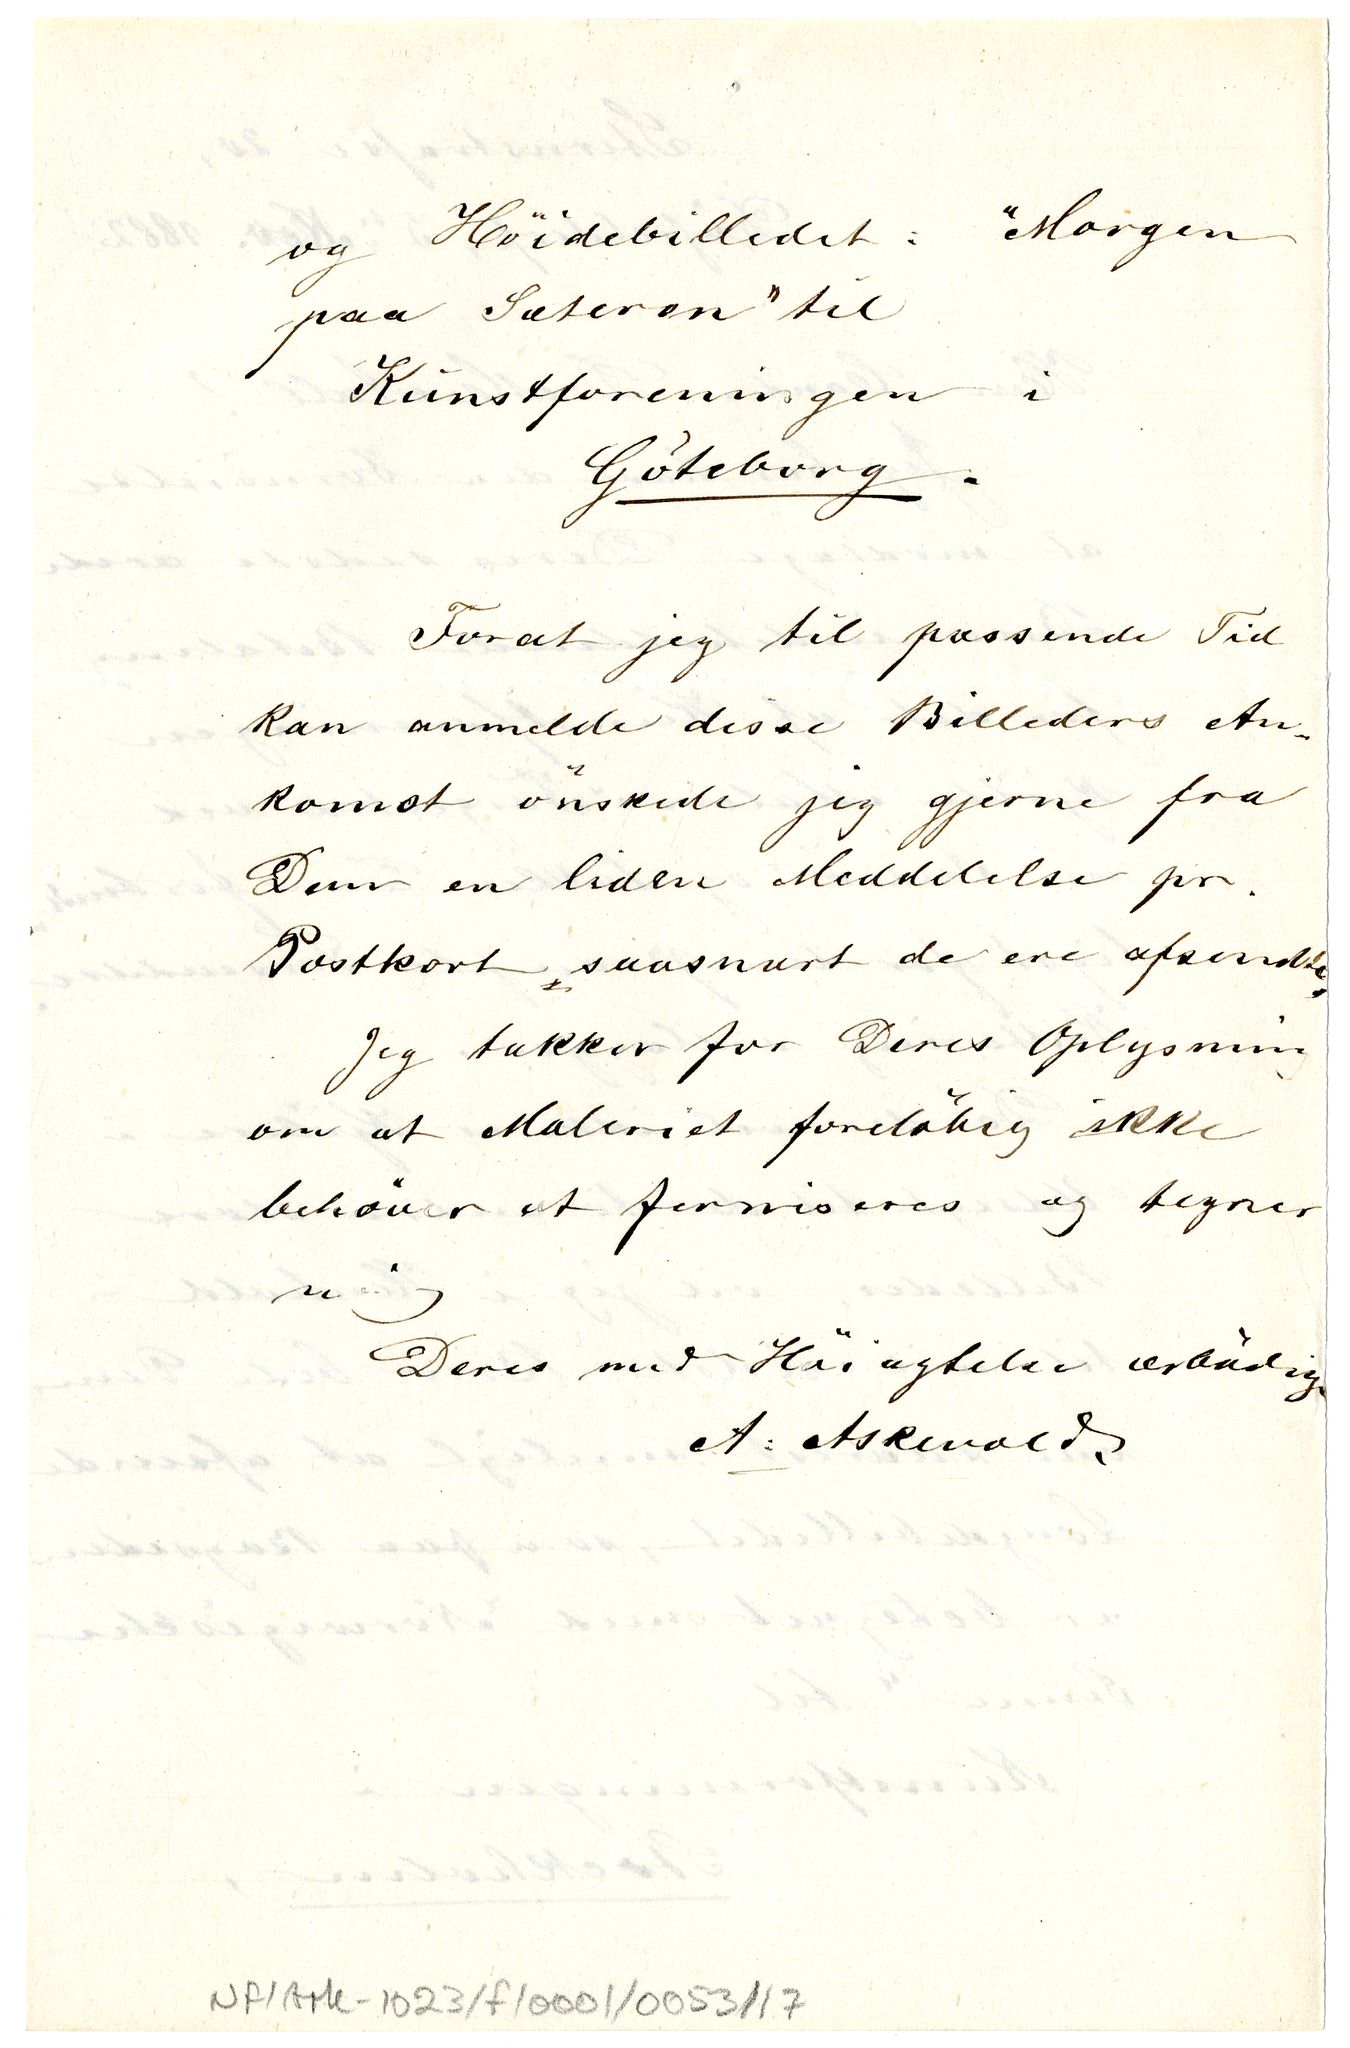 og Höidebilledet: "Morgen
paa Sæteren" til
Kunstforeningen i
Göteborg.
Forat jeg til passende Tid
kan anmelde disse Billeders An-
komst önskede jeg gjerne fra
Dem en liden Meddelelse pr.
Postkort, saasnart de ere afsendte.
Jeg takker for Deres Oplysning
om at Maleriet foreløbig ikke
behöver at ferniseres og tegner
mig
Deres med Höiagtelse ærbödig
A: Askevold.
NF/Ark-1023/F/0001/0053/17